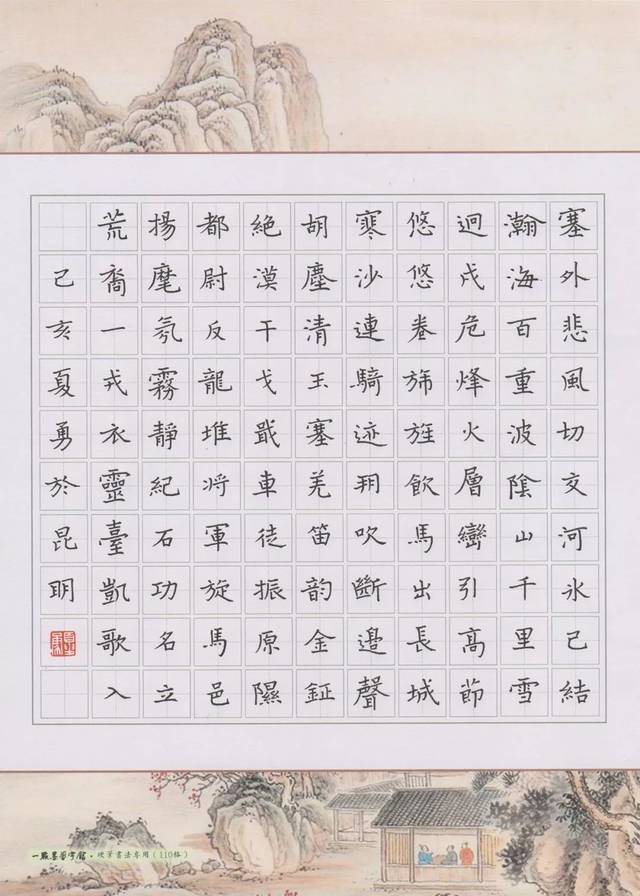 塞外悲風切交河氷已結
瀚海百重波陰山千里雪
迥戍危烽火層巒引高節
悠悠卷旆旌飲馬出長城
寒沙連騎迹朔吹斷邊聲
胡塵清玉塞羌笛韵金鉦
絕漠干戈戢車徒振原隰
都尉反龍堆將軍旋馬邑
揚麾氛霧靜紀石功名立
荒裔一戎衣靈臺凱歌入
己亥夏勇於昆明
硬筆書法專用（110格）